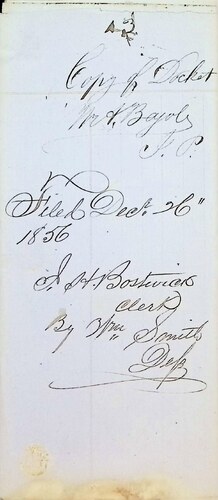 Copy of Docket
J. P.
Filed Dect. 26"
1856
J. H. Bostwick
Clerk
By Wm Smith
Dep